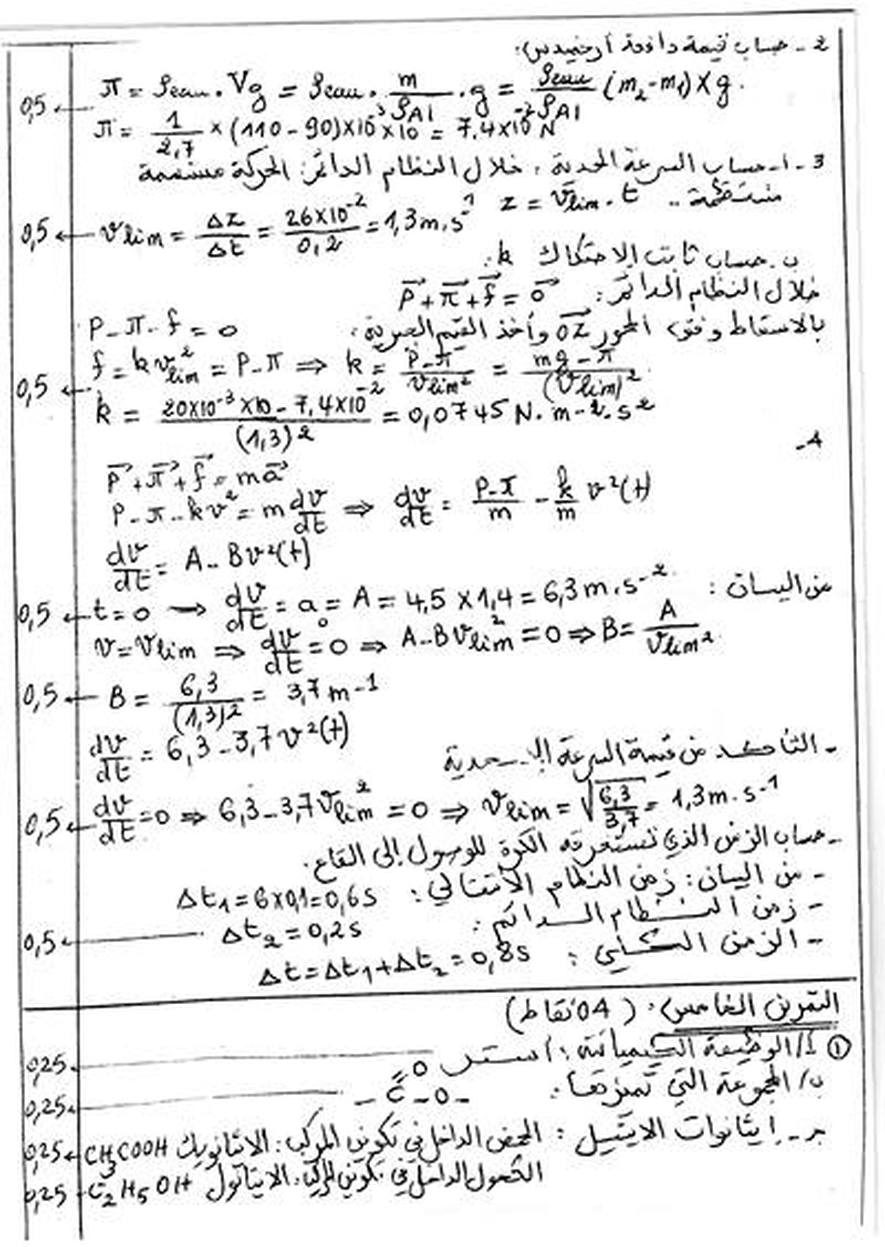 2 - حساب قيمة دافعة أرخميدس:
0,5 ← π = ρeau . Vg = ρeau . m/ρAl . g = ρeau/ρAl (m₂ - m₁) × g .
π = 1/2,7 × (110 - 90) × 10⁻³ × 10 = 7,4 × 10⁻² N
3 - أ - حساب السرعة الحدية : خلال النظام الدائم: الحركة مستقيمة
منتظمة .. z = vlim . t
0,5 ← vlim = Δz/Δt = 26×10⁻²/0,2 = 1,3 m.s⁻¹
ب. حساب ثابت الاحتكاك k :
خلال النظام الدائم: P⃗ + π⃗ + f⃗ = 0⃗
بالاسقاط وفق المحور OZ⃗ وأخذ القيم الجبرية: P - π - f = 0
0,5 ← f = k v²lim = P - π ⇒ k = P - π/vlim² = mg - π/(vlim)²
k = 20×10⁻³×10 - 7,4×10⁻²/(1,3)² = 0,0745 N.m-2.s²
4-
P⃗ + π⃗ + f⃗ = ma⃗
P - π - kv² = m dv/dt ⇒ dv/dt = P-π/m - k/m v²(t)
dv/dt = A - Bv²(t)
من البيان :
0,5 ← t = 0 → dv/dt = a₀ = A = 4,5 × 1,4 = 6,3 m.s-2.
v = vlim ⇒ dv/dt = 0 ⇒ A - Bvlim² = 0 ⇒ B = A/vlim²
0,5 ← B = 6,3/(1,3)² = 3,7 m-1
dv/dt = 6,3 - 3,7 v²(t)
- التأكد من قيمة السرعة الحدية
0,5 ← dv/dt = 0 ⇒ 6,3 - 3,7 vlim² = 0 ⇒ vlim = √6,3/3,7 = 1,3 m.s-1
- حساب الزمن الذي تستغرقه الكرة للوصول إلى القاع.
- من البيان: زمن النظام الانتقالي: Δt₁ = 6×0,1 = 0,6s
- زمن النظام الدائم : Δt₂ = 0,2s
0,5 ← - الزمن الكلي : Δt = Δt₁ + Δt₂ = 0,8s
التمرين الخامس: ( 04 نقاط )
0,25 ① أ/ الوظيفة الكيميائية : أستر
0,25 ب/ المجموعة التي تميزها: - C(=O) - O -
0,25 جـ - إيثانوات الايثيل : الحمض الداخل في تكوين المركب: الايثانويك CH₃COOH
0,25 الكحول الداخل في تكوين المركب: الايثانول C₂H₅OH